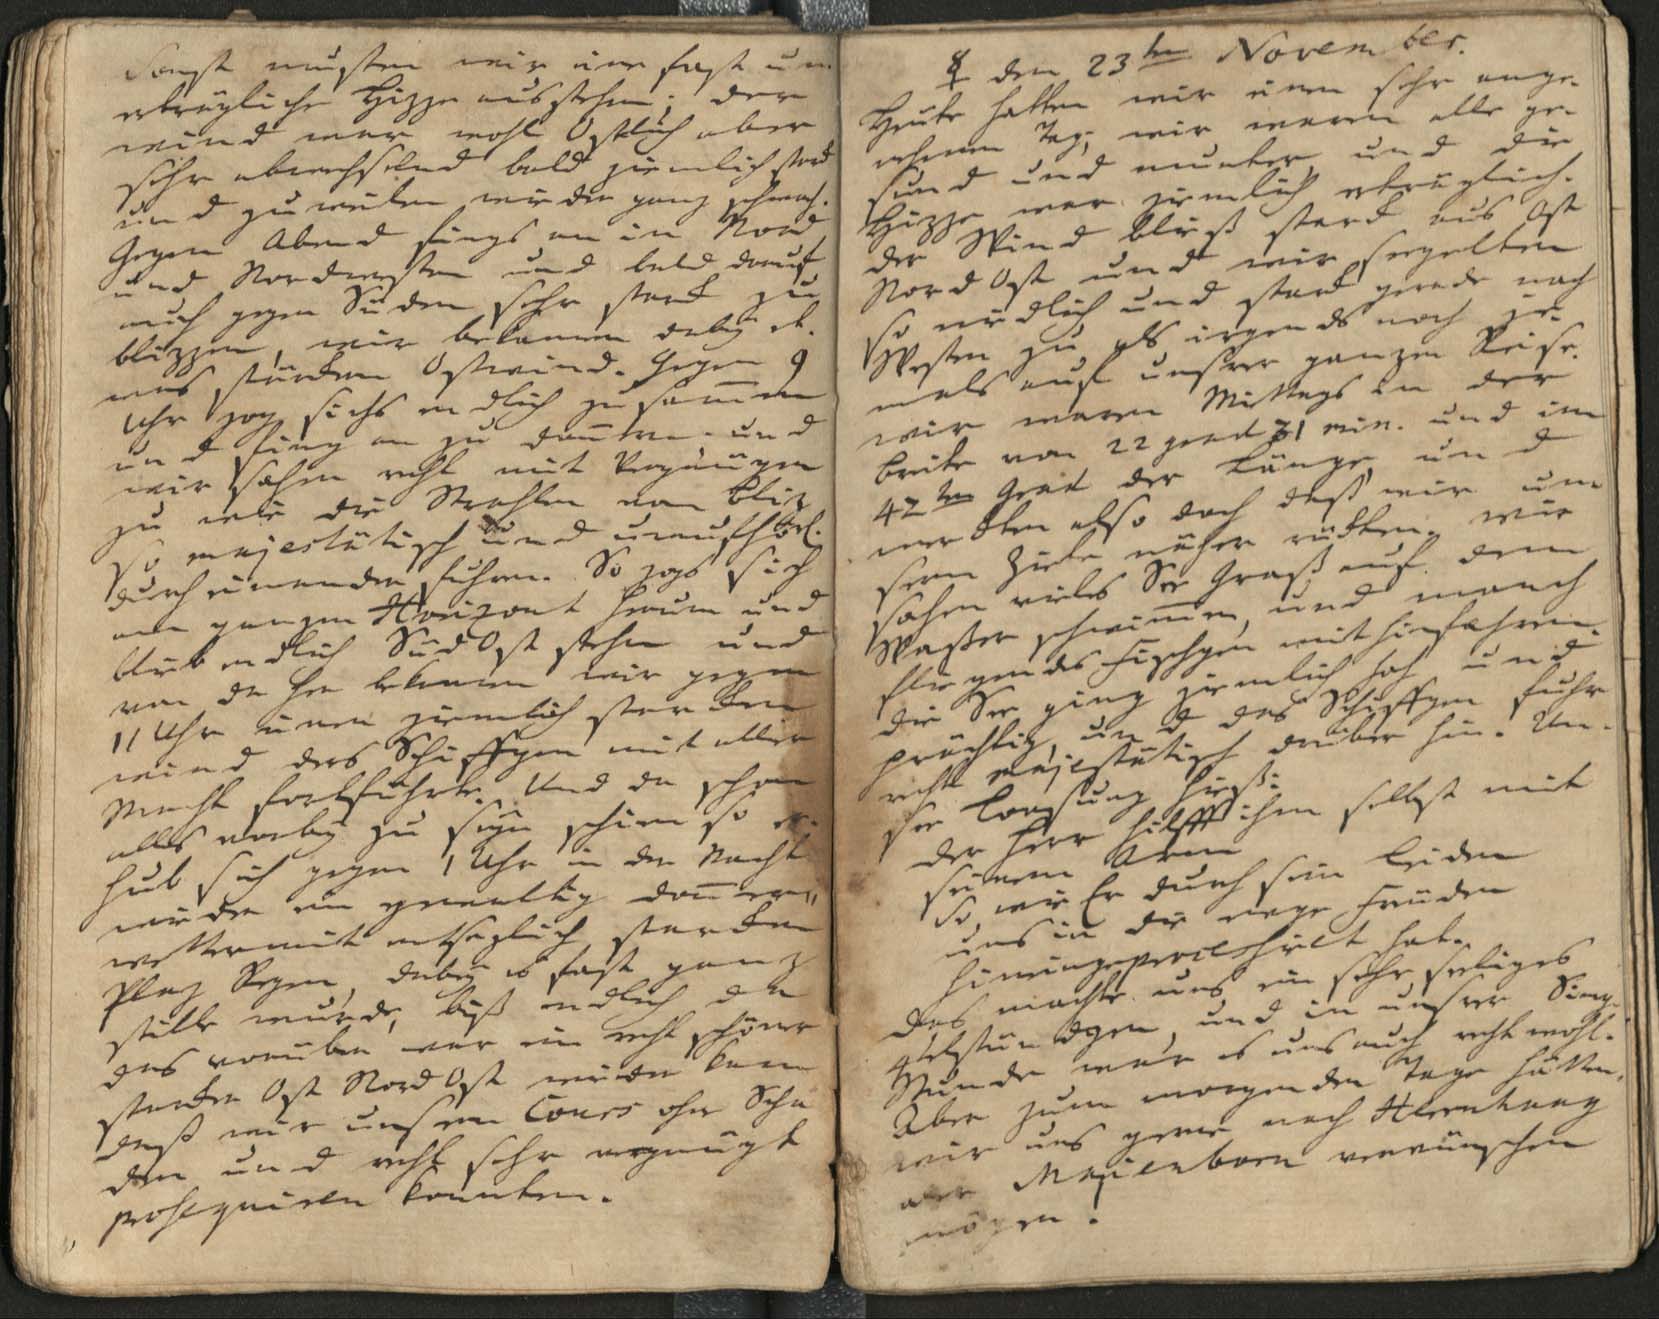 Sonst musten wir eine fast un-
erträgliche Hizze ausstehen; der
wind war wohl Östlich aber
sehr abwechselnd bald ziemlich stark
und zuweilen wieder ganz schwach.
Gegen Abend fings an in Nord
und Nordwesten und bald drauf
auch gegen Süden sehr stark zu
blizzen, wir bekamen dabey et-
was stärkern Ostwind. Gegen 9
Uhr zog sichs endlich zusammen
und fing an zu donnern und
wir sahen recht mit Vergnügen
zu wie die Strahlen vom Bliz
so majestätisch und unaufhörl.
durcheinander fuhren. So zogs sich
am ganzen Horizont herum und
blieb endlich Süd Ost stehn und
von da her bekamen wir gegen
11 Uhr einen ziemlich starken
wind der's Schiffgen mit aller
Macht fortführte. Und da schon
alles vorbey zu seyn schien so er-
hub sich gegen 1 Uhr in der Nacht
wieder ein gewaltig donner-
wetter mit entsezlich starken
Plaz Regen, dabey es fast ganz
stille wurde, biß endlich da
das vorüber war ein recht schöner
starker Ost Nord Ost wieder kam
daß wir unsern Cours ohne Scha
den und recht sehr vergnügt
prosequiren konnten.
☿ den 23ten November.
Heute hatten wir einen sehr ange-
nehmen Tag; wir waren alle ge-
sund und munter und die
Hizze war ziemlich erträglich.
der Wind bließ stark aus Ost
Nord Ost und wir seegelten
so niedlich und stark gerade nach
Westen zu als irgends noch je-
mals auf unsrer ganzen Reise.
wir waren Mittags in der
breite von 22 grad 31 min. und im
47ten Grad der Länge und
merkten also doch daß wir un
serm Ziele näher rückten. Wir
sahen vieles See Graß auf dem
Waßer schwimmen, und manch
fliegendes Fischgen mit hinfahren.
die See ging ziemlich hoch und
prächtig, und das Schiffgen fuhr
recht majestätisch drüber hin. Un-
sre Loosung hieß:
der Herr hilfft ihm selbst mit
seinem Arm
So wie Er durch sein Leiden
uns in die ewge Freuden
hinein
das machte uns ein sehr seeliges
und in unsrer Sing-
Stunde war es uns auch recht wohl.
Aber zum morgenden Tage hätten
wir uns gerne nach Herrnhaag
oder Marienborn verwünschen
mögen.